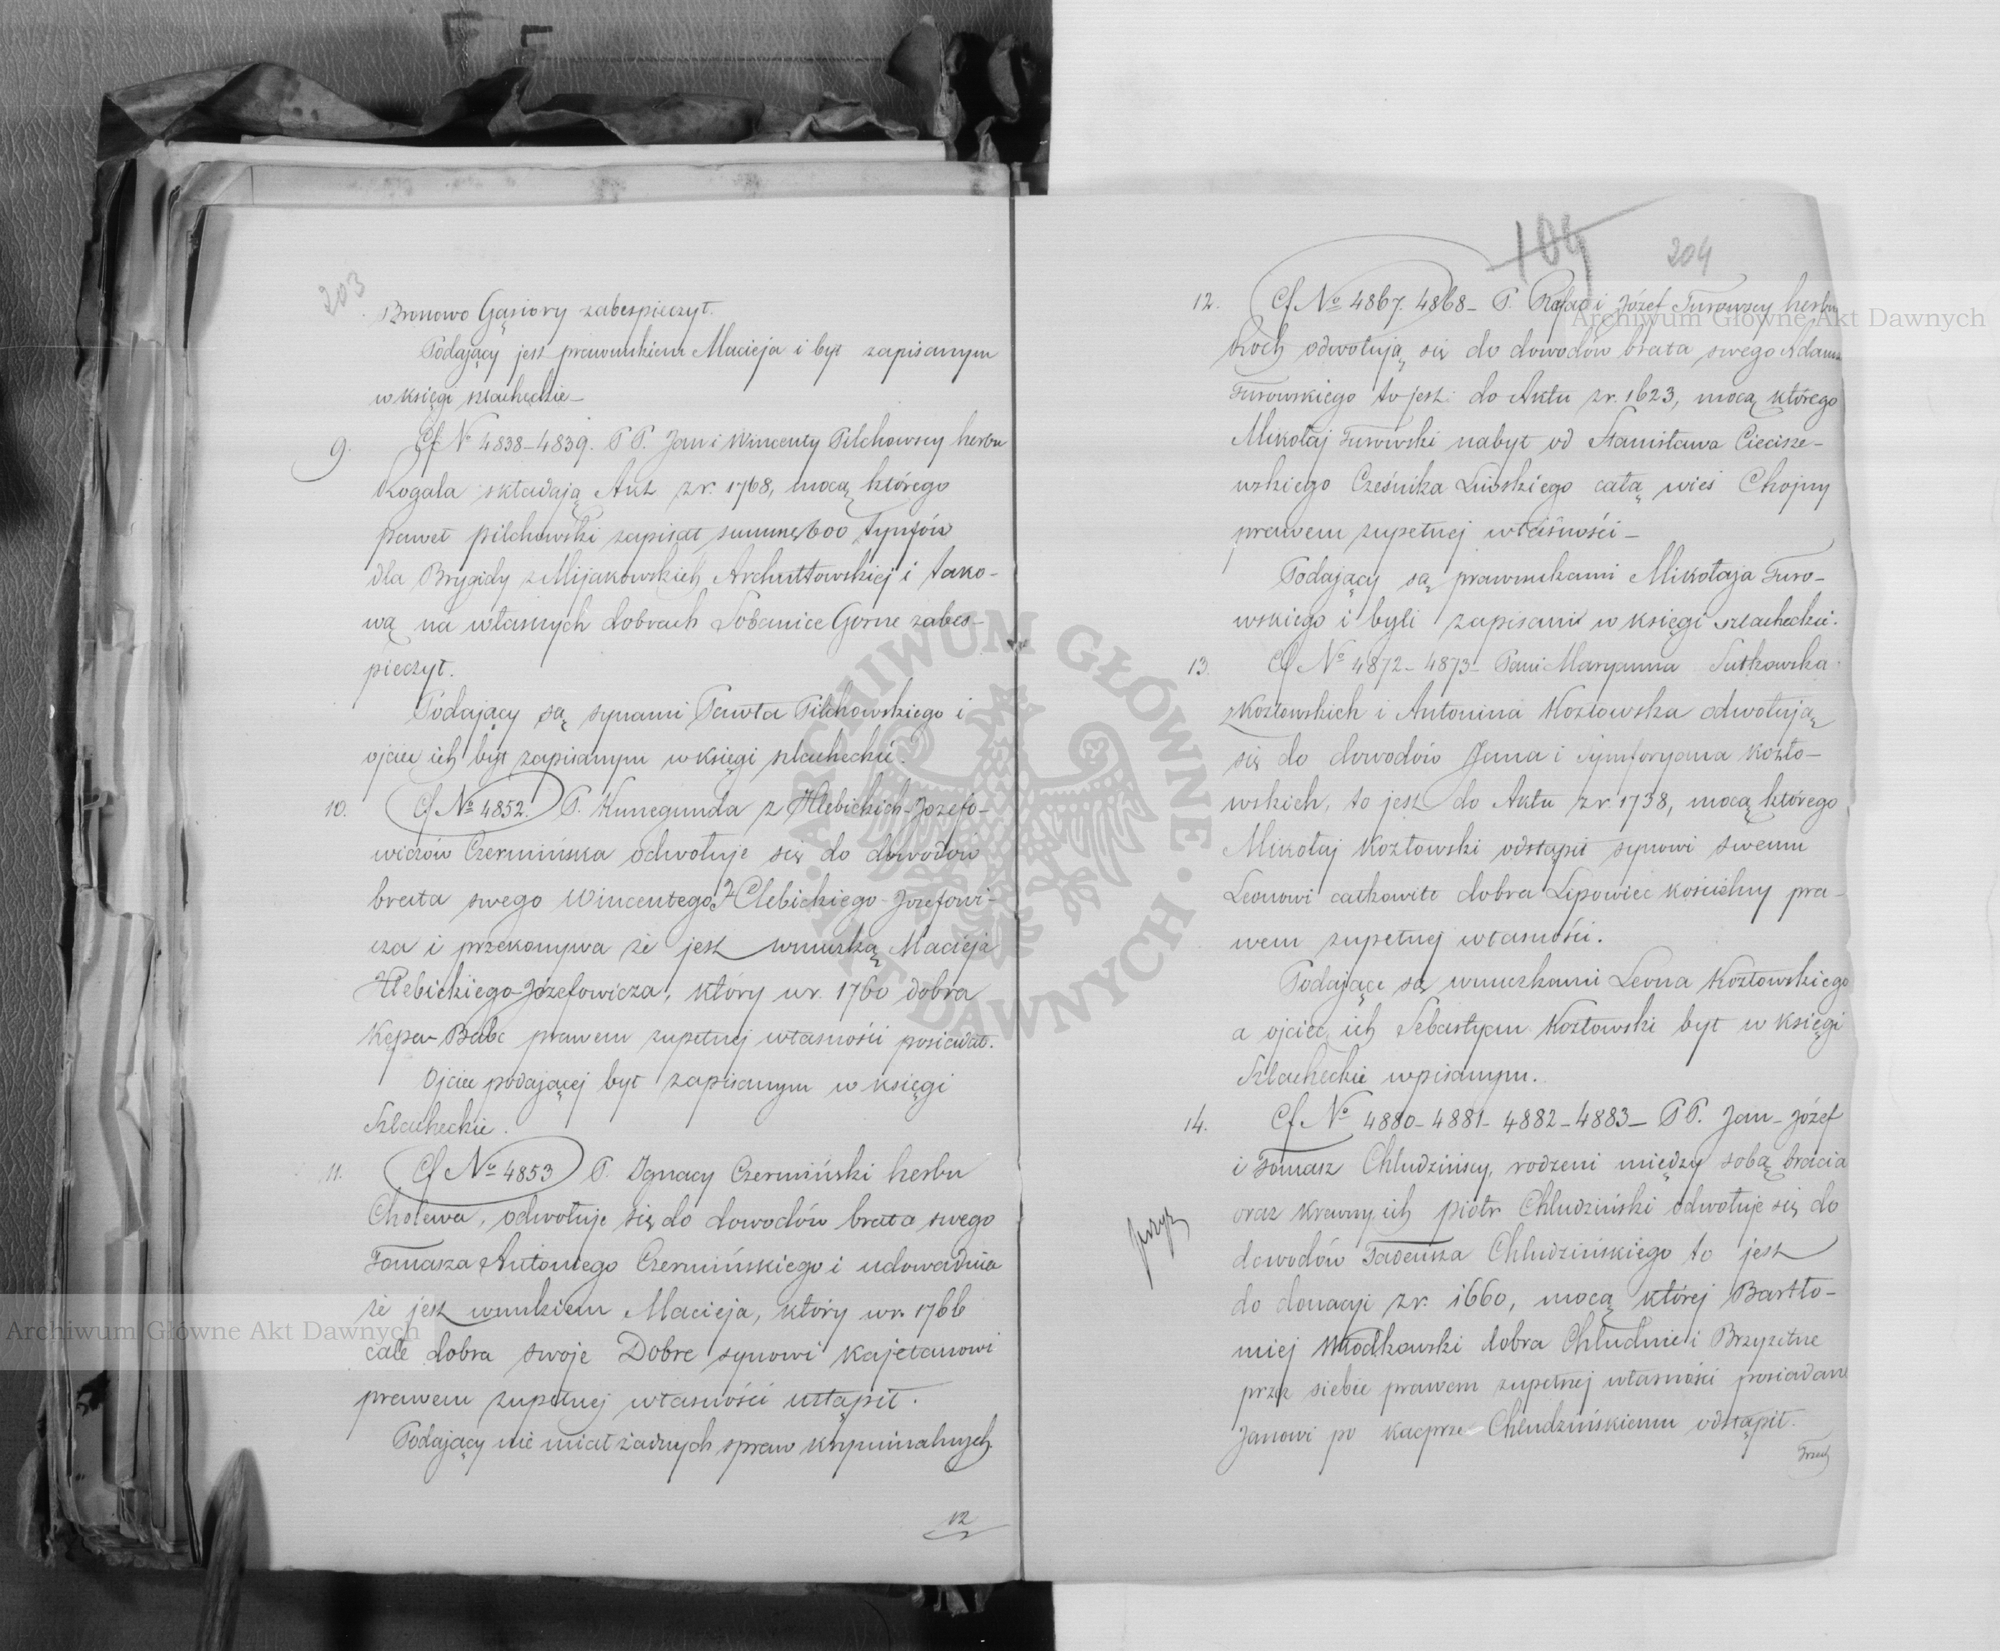 203
Bronowo Gąsiory zabezpieczył.
Podający jest prawnukiem Macieja i był zapisanym
w księgi szlacheckie –
9. Cf No 4838–4839. P P. Jan i Wincenty Pilchowscy herbu
Rogala składają Akt z r. 1768, mocą którego
Paweł Pilchowski zapisał summę 600 tynfów
dla Brygidy z Mijakowskich Archuttowskiej i tako-
wą na własnych dobrach Sobanice Gorne zabes-
pieczył.
Podający są synami Pawła Pilchowskiego i
ojciec ich był zapisanym w księgi szlacheckie.
10. Cf No 4852. P. Kunegunda z Hlebickich-Jozefo-
wiczów Czermińska odwołuje się do dowodów
brata swego Wincentego Hlebickiego-Jozefowi-
cza i przekonywa że jest wnuczką Macieja
Hlebickiego-Józefowicza, który w r. 1760 dobra
Kępa-Babc prawem zupełnej własności posiadał.
Ojciec podającej był zapisanym w księgi
Szlacheckie.
11. Cf No 4853 P. Ignacy Czermiński herbu
Cholewa, odwołuje się do dowodów brata swego
Tomasza Antoniego Czermińskiego i udowadnia
że jest wnukiem Macieja, który w r. 1766
całe dobra swoje Dobre synowi Kajetanowi
prawem zupełnej własności ustąpił.
Podający nie miał żadnych spraw kryminalnych.
12
104
204
12. Cf No 4867. 4868 – P. Rafał i Józef Turowscy herbu
Roch odwołują się do dowodów brata swego Adama
Turowskiego to jest: do Aktu z r. 1623, mocą którego
Mikołaj Turowski nabył od Stanisława Ciecisze-
wskiego Cześnika Liwskiego całą wieś Chojny
prawem zupełnej własności –
Podający są prawnukami Mikołaja Turo-
wskiego i byli zapisani w księgi szlacheckie.
13. Cf No 4872–4873 – Pani Maryanna Sutkowska
z Kozłowskich i Antonina Kozłowska odwołują
się do dowodów Jana i Symforyana Kozło-
wskich, to jest do Aktu z r. 1738, mocą którego
Mikołaj Kozłowski odstąpił synowi swemu
Leonowi całkowite dobra Lipowiec kościelny pra-
wem zupełnej własności.
Podające są wnuczkami Leona Kozłowskiego
a ojciec ich Sebastyan Kozłowski był w księgi
Szlacheckie wpisanym.
14. Cf No 4880–4881–4882–4883 – P P. Jan – Józef
i Tomasz Chludzińscy, rodzeni między sobą bracia
oraz krewny ich Piotr Chludziński odwołuje się do
dowodów Tadeusza Chludzińskiego to jest
do donacyi z r. 1660, mocą której Bartło-
miej Modkowski dobra Chludnie i Brzyzetne
przez siebie prawem zupełnej własności posiadane
Janowi po Kacprze Chludzińskiemu odstąpił.
Trzech
Archiwum Główne Akt Dawnych
Archiwum Główne Akt Dawnych
ARCHIWUM GŁÓWNE AKT DAWNYCH